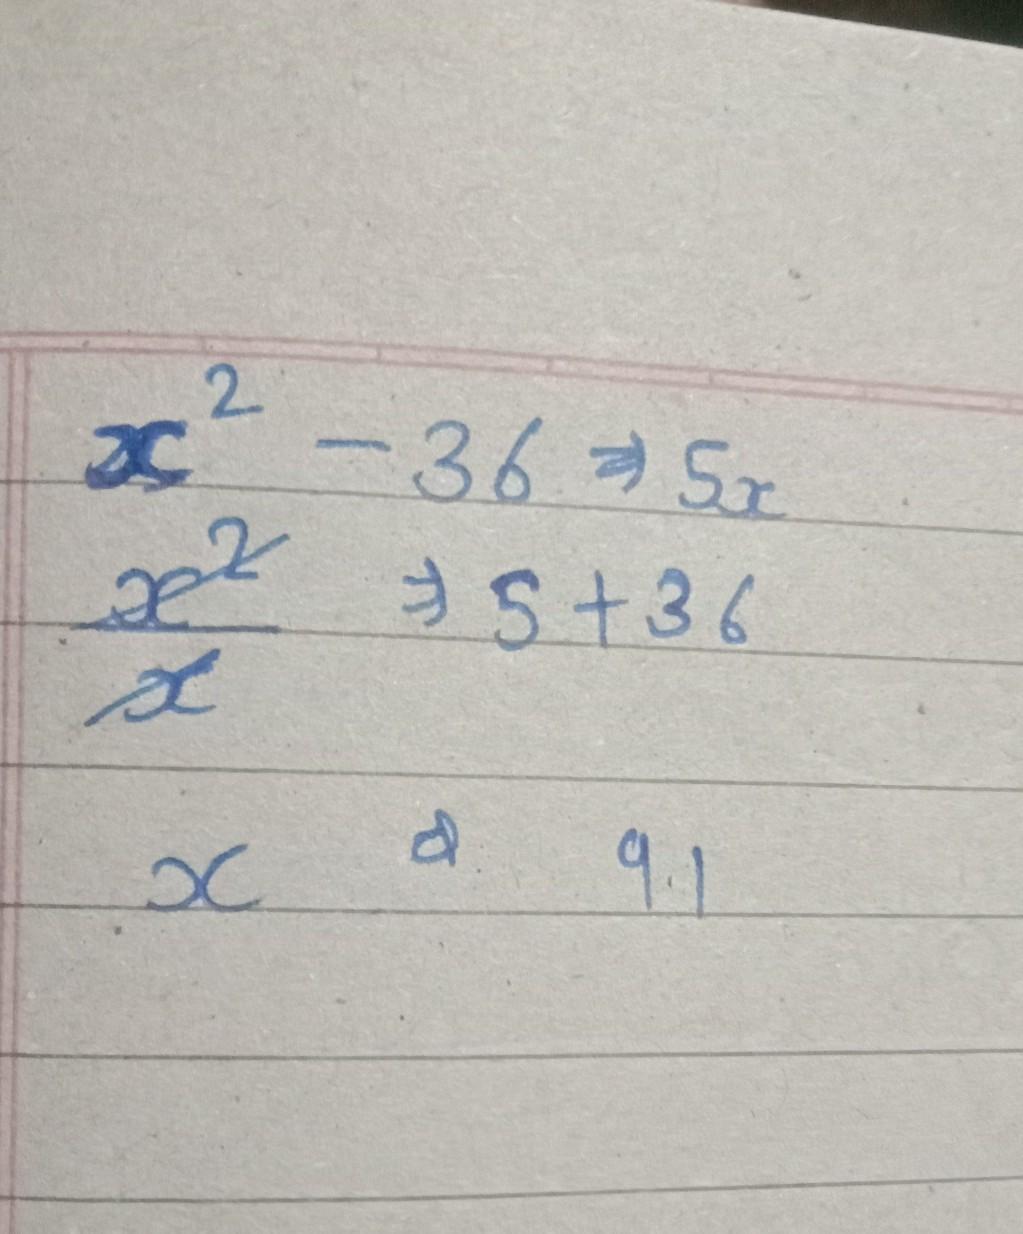 x² - 36 ⇒ 5x
x²/x ⇒ 5 + 36
x ⇒ 91